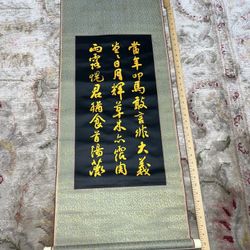 當年叩馬敢言非大義
炎〻日月輝草木亦霑周
雨露愧君猶食首陽薇